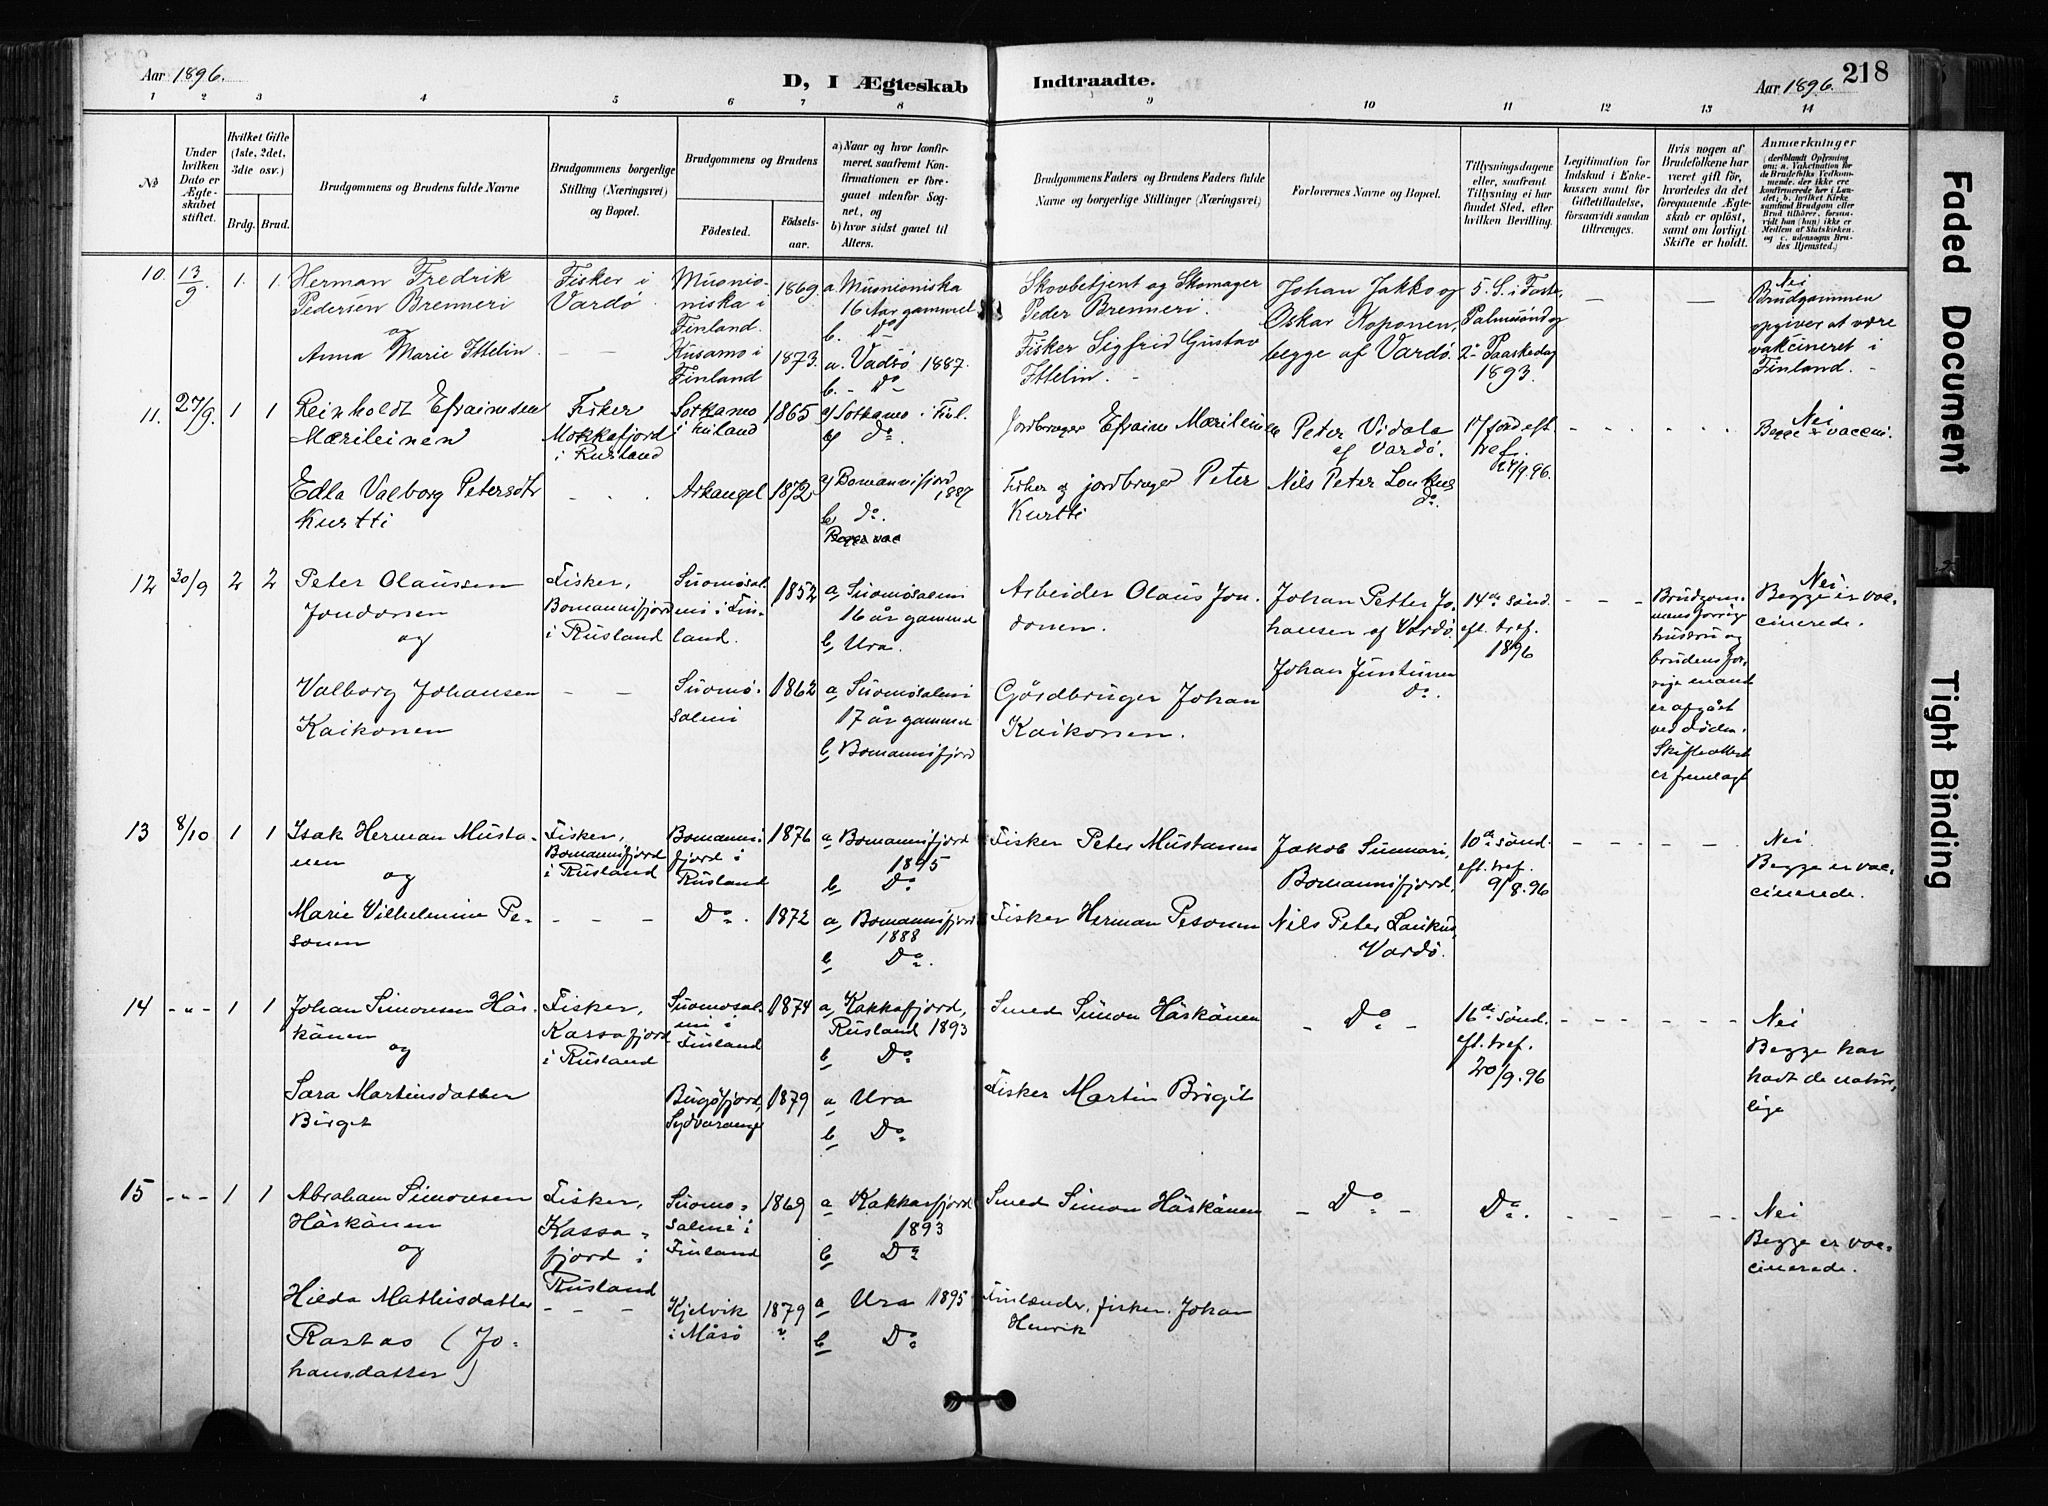 Aar 1896.
D, I Ægteskab
Indtraadte.
Aar 1896.
218
1 2 3 4 5 6 7 8 9 10 11 12 13 14
№
Under hvilken Dato er Ægteskabet stiftet.
Hvilket Gifte (1ste, 2det, 3die osv.)
Brdg. Brud.
Brudgommens og Brudens fulde Navne
Brudgommens borgerlige Stilling (Næringsvei) og Bopæl.
Brudgommens og Brudens
Fødested.
Fødselsaar.
a) Naar og hvor konfirmeret, saafremt Konfirmationen er foregaaet udenfor Sognet, og
b) hvor sidst gaaet til Alters.
Brudgommens Faders og Brudens Faders fulde Navne og borgerlige Stillinger (Næringsvei)
Forlovernes Navne og Bopæl.
Tillysningsdagene eller, saafremt Tillysning ei har fundet Sted, efter hvilken Bevilling.
Legitimation for Indskud i Enkekassen samt for Giftetilladelse, forsaavidt saadan tiltrænges.
Hvis nogen af Brudefolkene har været gift før, hvorledes da det foregaaende Ægteskab er opløst, samt om lovligt Skifte er holdt.
Anmærkninger
10. 13/9. 1. 1.
Herman Fredrik
Pedersen Brenneri
og
Anna Marie Ittelin.
Fisker i
Vardø
Muonioniska i
Finland.
1869.
a. Muonioniska
16 Aar gammel
b. Do
Kusamo i
Finland
1873.
a. Vadsø 1887.
b. - Do -
Skovbetjent og Skomager
Peder Brenneri.
Fisker Sigfrid Gustav
Ittelin. -
Johan Jakko og
Oskar Koponen,
begge af Vardø.
5. S. i Faste,
Palmesønd og
2. Paaskedag
1893.
Nei
Brudgommen
opgiver at være
vakcineret i
Finland.
11. 27/9. 1 1
Reinholdt Efraimsen
Mærileinen
Edla Valborg Petersdtr
Kurtti
Fisker
Mokkafjord
i Rusland
Sotkamo
i Finland
1865
a) Sotkamo i Finl.
b) do.
Arkangel
1872
a) Bomannsfjord
1887
b) do.
Jordbruger Efraim Mærileinen
Fisker og jordbruger Peter
Kurtti
Peter Vidala
af Vardø.
Nils Peter Loukus
do.
17 sønd eft.
tref.
27/9.96.
Nei
Begge er vaccini.
12 30/9 2 2
Peter Olaussen
Jondonen
og
Valborg Johansen
Kaikonen
Fisker,
Bomannsfjord
i Rusland
Suomosalmi i Finland.
1852
a, Suomosalmi
16 år gammel
b, Ura.
Suomosalmi
1862
a, Suomosalmi
17 år gammel
b, Bomannsfjord
Arbeider Olaus Jondonen.
Gårdbruger Johan
Kaikonen.
Johan Petter Johansen af Vardø.
Johan Juntunen
do.
14de sønd.
eft. tref.
1896
Brudgommens forrige
hustru og
brudens forrige mand
er afgåt
ved døden.
Skifteattest
er fremlagt
Nei.
Begge er vaccinerede.
13 8/10 1 1
Isak Herman Mustanen
og
Marie Vilhelmine Pesonen
Fisker,
Bomannsfjord
i Rusland
Bomannsfjord i
Rusland
1876
a, Bomannsfjord
1895
b, Do
Do.
1872
a, Bomannsfjord
1888
b Do.
Fisker Peter Mustanen
Fisker Herman Pesonen
Jakob Sunnari,
Bomannsfjord,
Nils Peter Laukus,
Vardø.
10de sønd.
eft. tref.
9/8.96
Nei.
Begge er vaccinerede.
14 -"- 1 1
Johan Simonsen Härkänen
og
Sara Martinsdatter
Birget
Fisker,
Kassafjord
i Rusland
Suomosalmi i
Finland
1874
a, Kakkafjord,
Rusland 1893
b Do
Bugöfjord,
Sydvaranger
1879
a Ura
b, Do
Smed Simon Härkänen
Fisker Martin Brigit
- Do -
16de sønd.
eft. tref.
20/9.96
Nei
Begge har
havt de naturlige
15 -"- 1 1
Abraham Simonsen
Härkänen
og
Hilda Mathisdatter
Rastas (Johansdatter)
Fisker,
Kassafjord i
Rusland
Suomosalmi i
Finland
1869
a Kakkasfjord
1893
b Do
Kjelvik
i Måsö
1879
a Ura 1895
b Do
Smed Simon Härkänen
Finlænder, fisker. Johan
Henrik
- Do -
Do.
Nei
Begge er vaccinerede.
Faded Document
Tight Binding